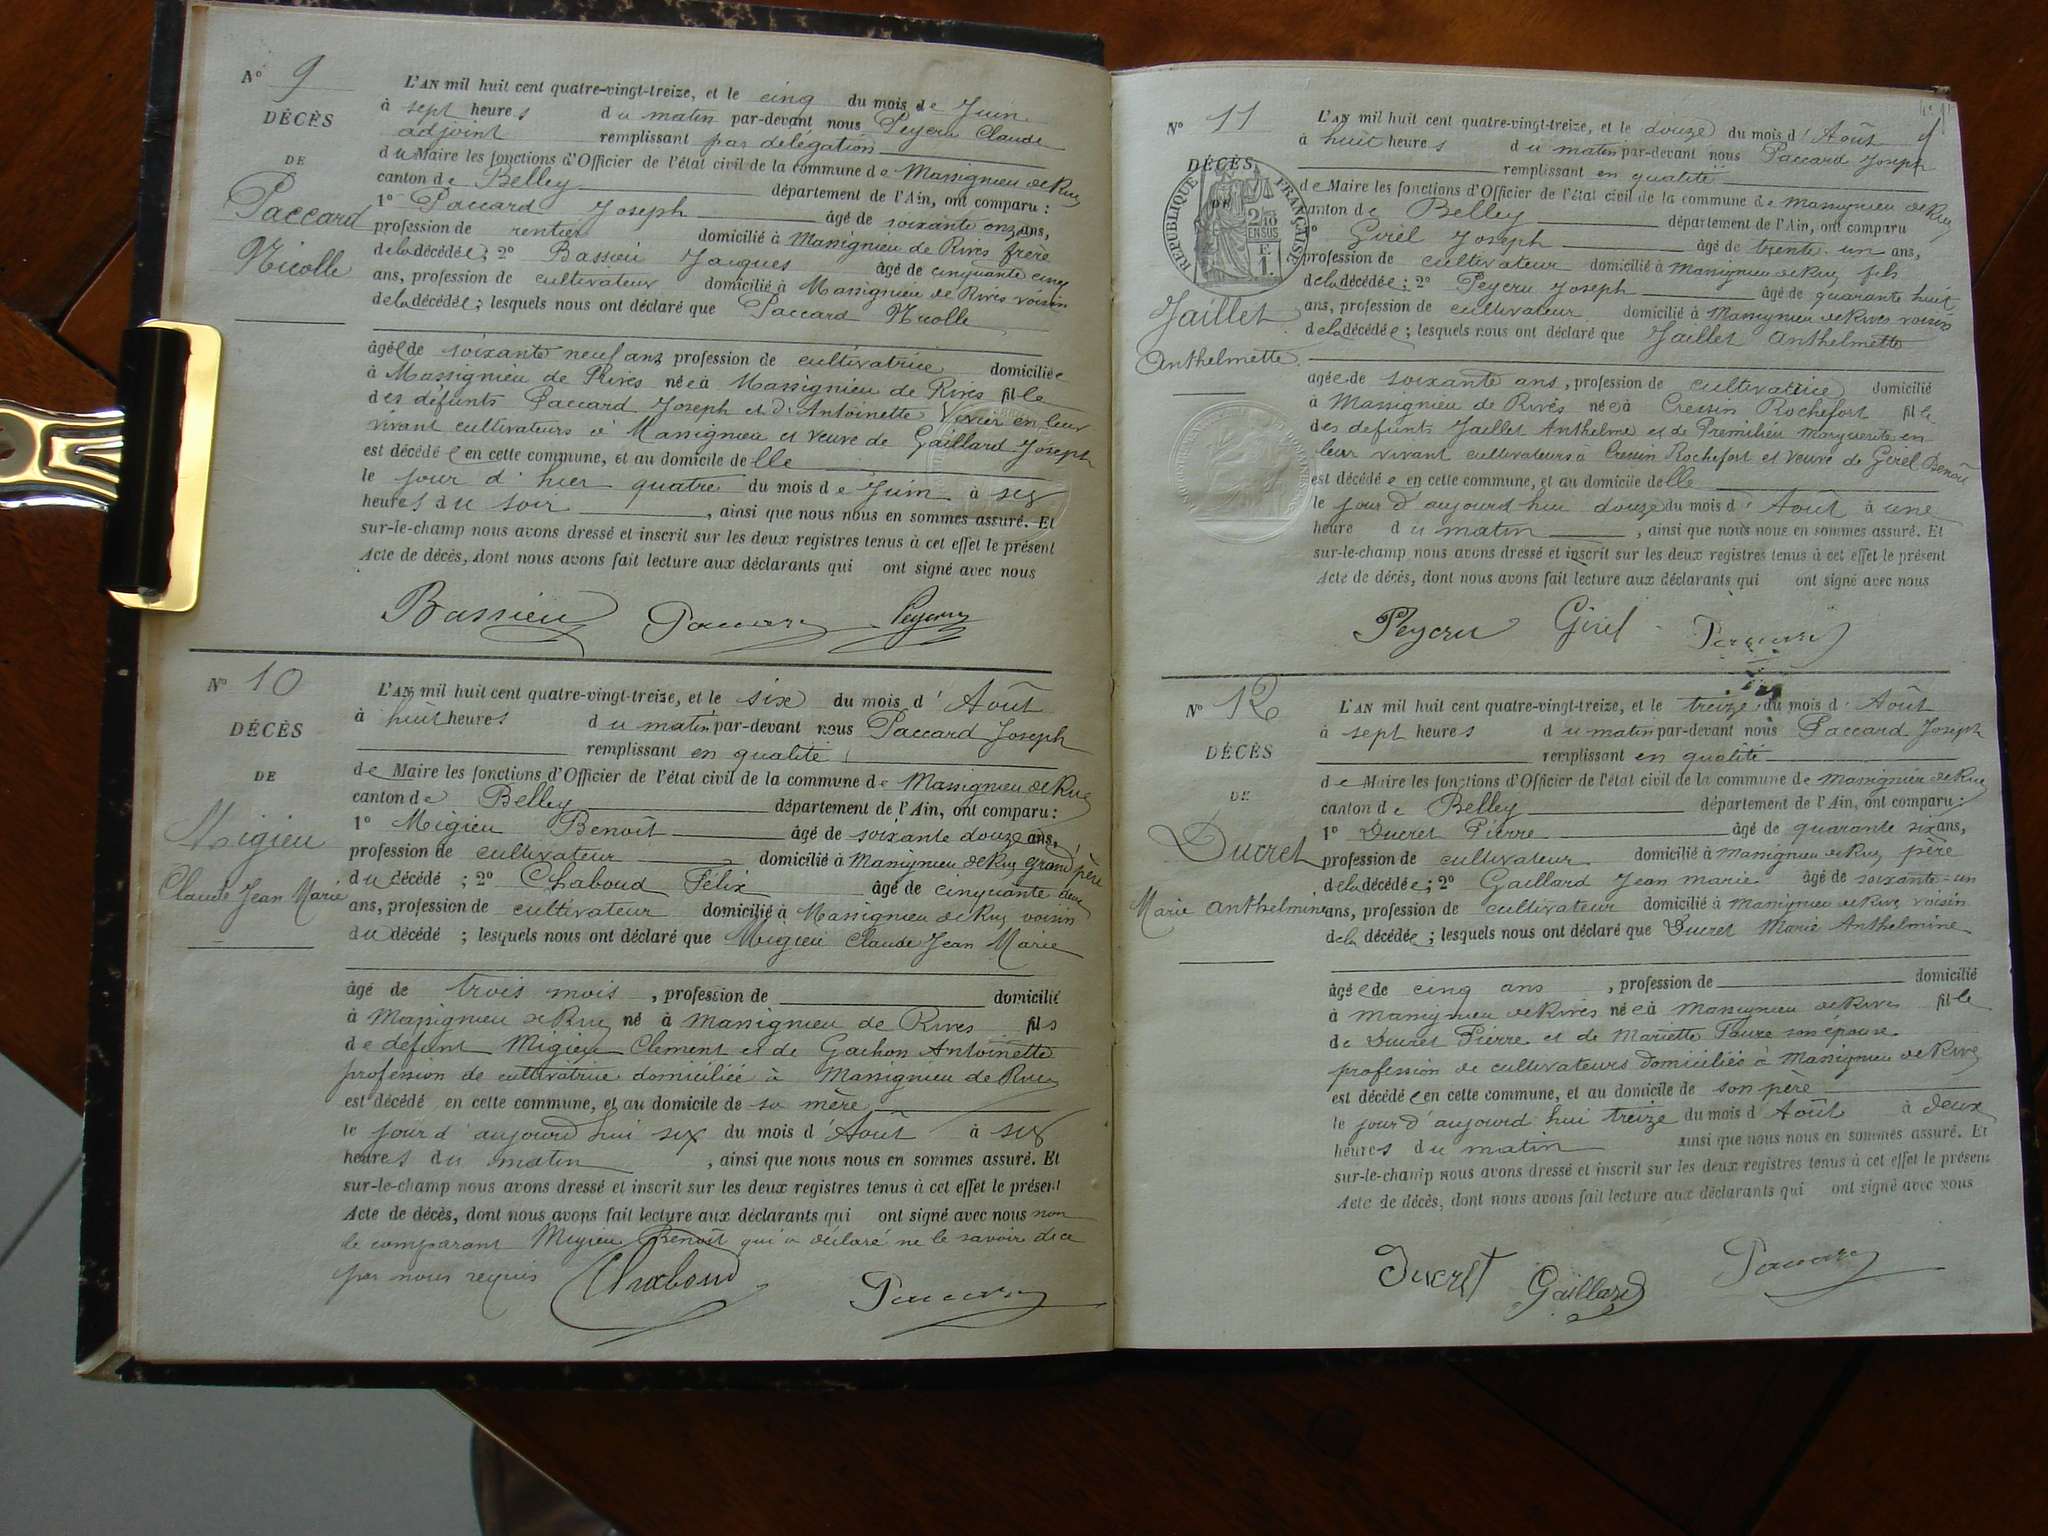 N° 9
DÉCÈS
DE
Paccard
Nicolle
L'AN mil huit cent quatre-vingt-treize, et le cinq du mois de Juin
à sept heures du matin par-devant nous Peycru Claude
adjoint remplissant par délégation
du Maire les fonctions d'Officier de l'état civil de la commune de Massignieu de Rives
canton de Belley département de l'Ain, ont comparu :
1° Paccard Joseph âgé de soixante onze ans,
profession de rentier domicilié à Massignieu de Rives frère
de la décédée ; 2° Bassieu Jacques âgé de cinquante cinq
ans, profession de cultivateur domicilié à Massignieu de Rives voisin
de la décédée ; lesquels nous ont déclaré que Paccard Nicolle
âgée de soixante neuf ans profession de cultivatrice domiciliée
à Massignieu de Rives née à Massignieu de Rives fille
des défunts Paccard Joseph et d'Antoinette en leur
vivant cultivateurs à Massignieu et veuve de Gaillard Joseph
est décédée en cette commune, et au domicile delle
le jour d'hier quatre du mois de Juin à six
heures du soir , ainsi que nous nous en sommes assuré. Et
sur-le-champ nous avons dressé et inscrit sur les deux registres tenus à cet effet le présent
Acte de décès, dont nous avons fait lecture aux déclarants qui ont signé avec nous
Bassieu Paccard Peycru
N° 10
DÉCÈS
DE
Migieu
Claude Jean Marie
L'AN mil huit cent quatre-vingt-treize, et le six du mois d'Août
à huit heures du matin par-devant nous Paccard Joseph
remplissant en qualité
de Maire les fonctions d'Officier de l'état civil de la commune de Massignieu de Rives
canton de Belley département de l'Ain, ont comparu :
1° Migieu Benoît âgé de soixante douze ans,
profession de cultivateur domicilié à Massignieu de Rives grand père
du décédé ; 2° Chaboud Félix âgé de cinquante deux
ans, profession de cultivateur domicilié à Massignieu de Rives voisin
du décédé ; lesquels nous ont déclaré que Migieu Claude Jean Marie
âgé de trois mois , profession de domicilié
à Massignieu de Rives né à Massignieu de Rives fils
de défunt Migieu Clement et de Gachon Antoinette
profession de cultivatrice domiciliée à Massignieu de Rives
est décédé en cette commune, et au domicile de sa mère
le jour d'aujourd'hui six du mois d'Août à six
heures du matin , ainsi que nous nous en sommes assuré. Et
sur-le-champ nous avons dressé et inscrit sur les deux registres tenus à cet effet le présent
Acte de décès, dont nous avons fait lecture aux déclarants qui ont signé avec nous non
le comparant Migieu Benoît qui a déclaré ne le savoir de ce
par nous requis Chaboud Paccard
N° 11
DÉCÈS
DE
RÉPUBLIQUE FRANÇAISE
2/10 EN SUS
F.
1.
Jaillet
Anthelmette
L'AN mil huit cent quatre-vingt-treize, et le douze du mois d'Août
à huit heures du matin par-devant nous Paccard Joseph
remplissant en qualité
de Maire les fonctions d'Officier de l'état civil de la commune de Massignieu de Rives
canton de Belley département de l'Ain, ont comparu
1° Girel Joseph âgé de trente un ans,
profession de cultivateur domicilié à Massignieu de Rives fils
de la décédée ; 2° Peycru Joseph âgé de quarante huit
ans, profession de cultivateur domicilié à Massignieu de Rives voisin
de la décédée ; lesquels nous ont déclaré que Jaillet Anthelmette
agée de soixante ans, profession de cultivatrice domicilié
à Massignieu de Rives née à Cressin Rochefort fille
des defunts Jaillet Anthelme et de Premilieu Marguerite en
leur vivant cultivateurs à Cressin Rochefort et veuve de Girel Benoît
est décédée en cette commune, et au domicile delle
le jour d'aujourd'hui douze du mois d'Août à une
heure du matin , ainsi que nous nous en sommes assuré. Et
sur-le-champ nous avons dressé et inscrit sur les deux registres tenus à cet effet le présent
Acte de décès, dont nous avons fait lecture aux déclarants qui ont signé avec nous
Peycru Girel Paccard
N° 12
DÉCÈS
DE
Ducret
Marie Anthelmine
L'AN mil huit cent quatre-vingt-treize, et le treize du mois d'Août
à sept heures du matin par-devant nous Paccard Joseph
remplissant en qualité
de Maire les fonctions d'Officier de l'état civil de la commune de Massignieu de Rives
canton de Belley département de l'Ain, ont comparu :
1° Ducret Pierre âgé de quarante six ans,
profession de cultivateur domicilié à Massignieu de Rives père
de la décédée ; 2° Gaillard Jean Marie âgé de soixante un
ans, profession de cultivateur domicilié à Massignieu de Rives voisin
de la décédée ; lesquels nous ont déclaré que Ducret Marie Anthelmine
âgée de cinq ans , profession de domicilié
à Massignieu de Rives née à Massignieu de Rives fille
de Ducret Pierre et de Mariette son épouse
profession de cultivateurs domiciliés à Massignieu de Rives
est décédée en cette commune, et au domicile de son père
le jour d'aujourd'hui treize du mois d'Août à deux
heures du matin ainsi que nous nous en sommes assuré. Et
sur-le-champ nous avons dressé et inscrit sur les deux registres tenus à cet effet le présent
Acte de décès, dont nous avons fait lecture aux déclarants qui ont signé avec nous
Ducret Gaillard Paccard